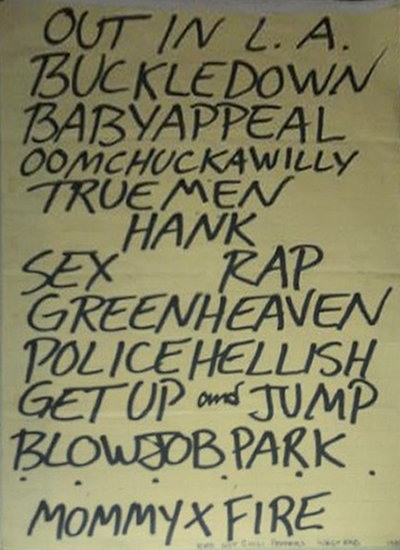 OUT IN L.A.
BUCKLEDOWN
BABYAPPEAL
OOMCHUCKAWILLY
TRUEMEN
HANK
SEX RAP
GREENHEAVEN
POLICEHELLISH
GET UP and JUMP
BLOWJOB PARK
MOMMYXFIRE
RED HOT CHILI PEPPERS